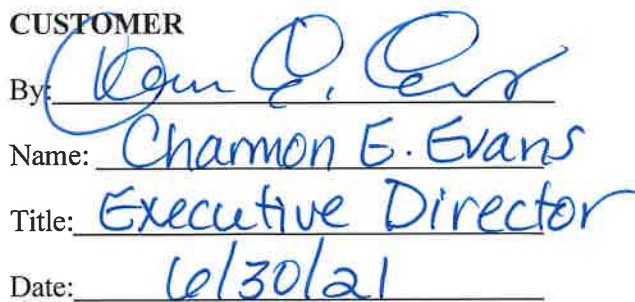 CUSTOMER
By:
Name: Charmon E. Evans
Title: Executive Director
Date: 6/30/21